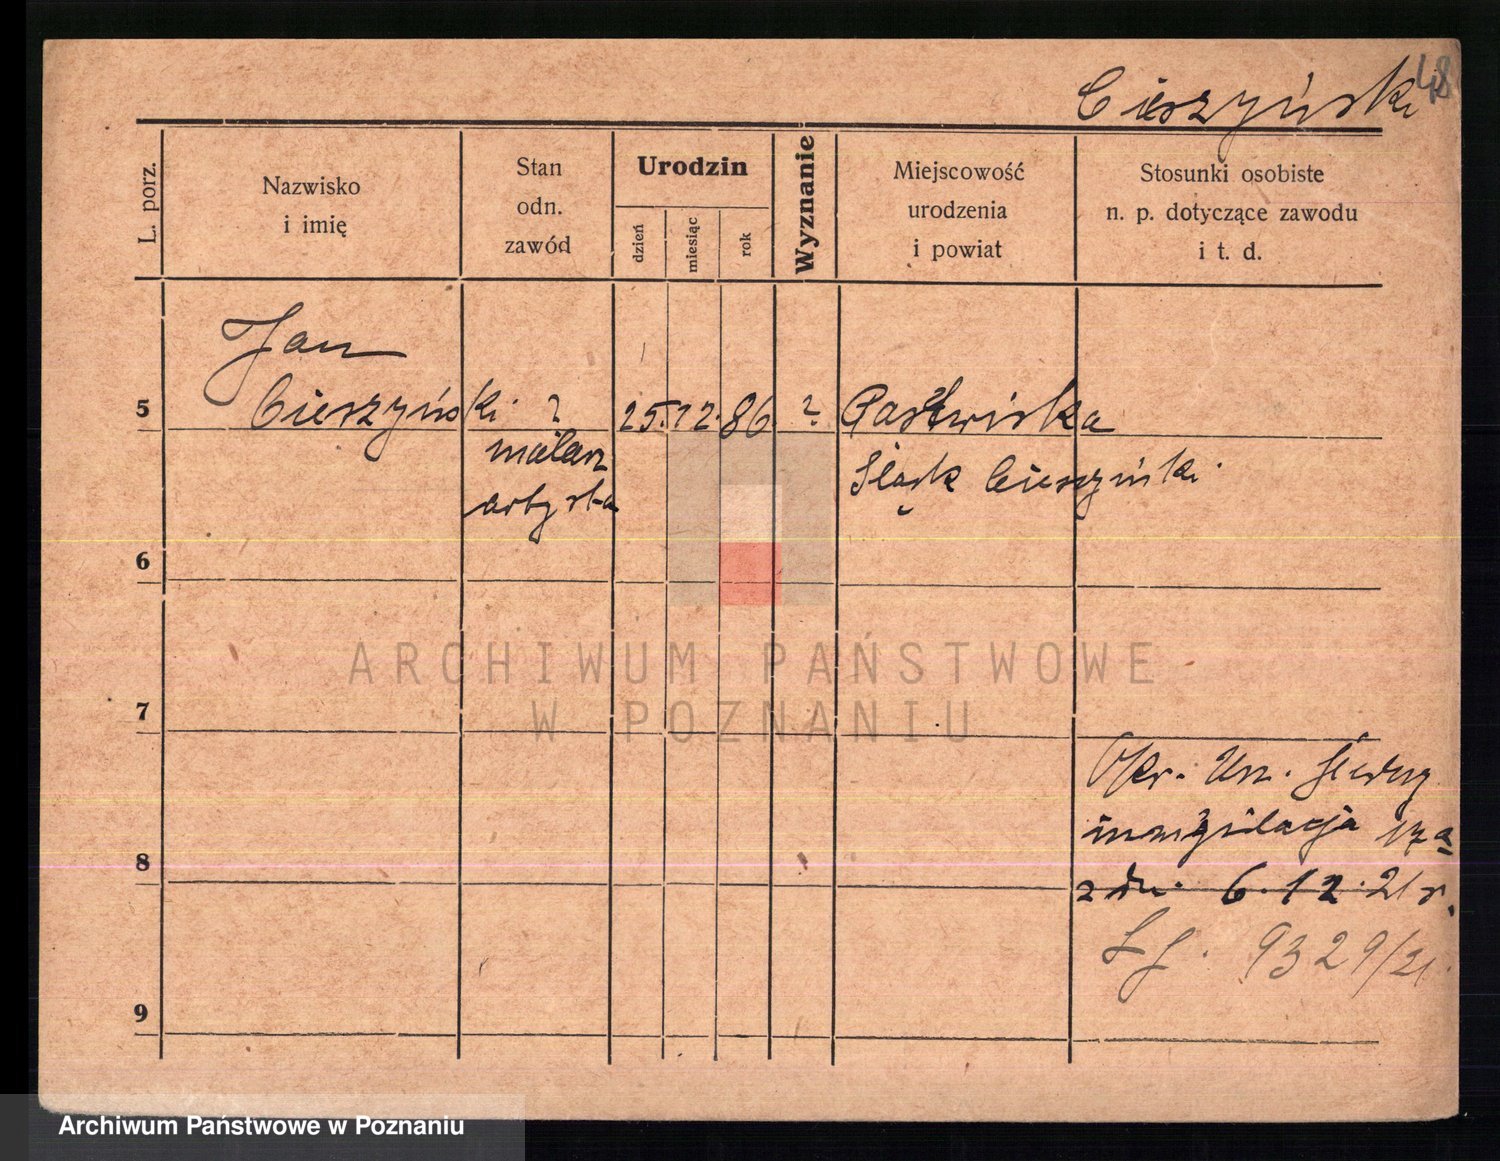 48
Cieszyński
L. porz.
Nazwisko
i imię
Stan
odn.
zawód
Urodzin
dzień
miesiąc
rok
Wyznanie
Miejscowość
urodzenia
i powiat
Stosunki osobiste
n. p. dotyczące zawodu
i t. d.
Jan
5 Cieszyński ? 25. 12. 86 ? Pastwiska
malarz
artysta
Śląsk Cieszyński
6
ARCHIWUM PAŃSTWOWE
W POZNANIU
7
Okr. Urz.
8
z dn. 6. 12. 21 r.
9329/21.
9
Archiwum Państwowe w Poznaniu